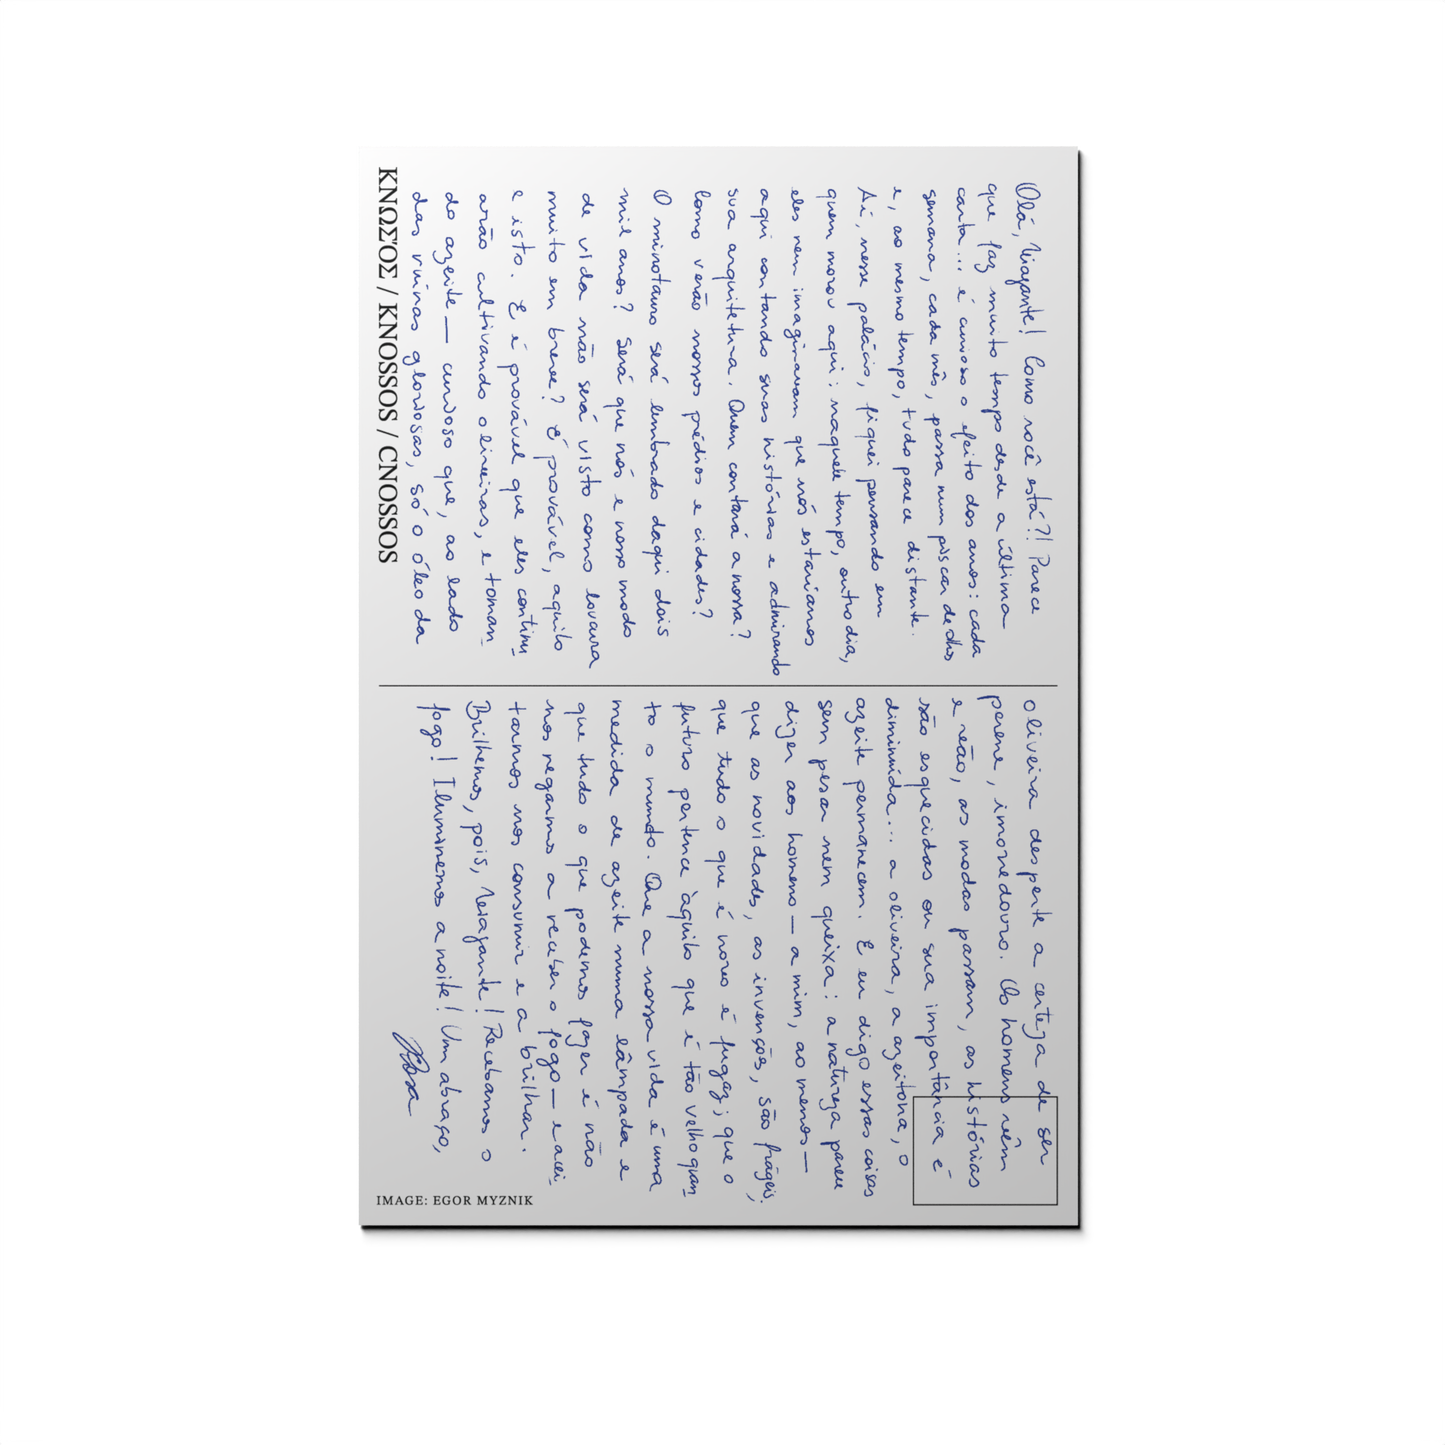 Olá, Viajante! Como você está?! Parece
que faz muito tempo desde a última
carta... é curioso o efeito dos anos: cada
semana, cada mês, passa num piscar de olhos
e, ao mesmo tempo, tudo parece distante.
Ai, nesse palácio, fiquei pensando em
quem morou aqui: naquele tempo, outro dia,
eles nem imaginavam que nós estaríamos
aqui contando suas histórias e admirando
sua arquitetura. Quem contará a nossa?
Como verão nossos prédios e cidades?
O minotauro será lembrado daqui dois
mil anos? Será que nós e nosso modo
de vida não será visto como loucura
muito em breve? É provável, aquilo
e isto. E é provável que eles continu-
arão cultivando oliveiras, e toman-
do azeite — curioso que, ao lado
das ruínas gloriosas, só o óleo da
ΚΝΩΣΌΣ / KNOSSOS / CNOSSOS
oliveira desperte a certeza de ser
perene, imorredouro. Os homens vêm
e vão, as modas passam, as histórias
são esquecidas ou sua importância é
diminuída... a oliveira, a azeitona, o
azeite permanecem. E eu digo essas coisas
sem pesar nem queixa: a natureza parece
dizer aos homens — a mim, ao menos —
que as novidades, as invenções, são frágeis;
que tudo o que é novo é fugaz; que o
futuro pertence àquilo que é tão velho quan-
to o mundo. Que a nossa vida é uma
medida de azeite numa lâmpada e
que tudo o que podemos fazer é não
nos negarmos a receber o fogo — e acei-
tarmos nos consumir e a brilhar.
Brilhemos, pois, Viajante! Recebamos o
fogo! Iluminemos a noite! Um abraço,
Rosa
IMAGE: EGOR MYZNIK